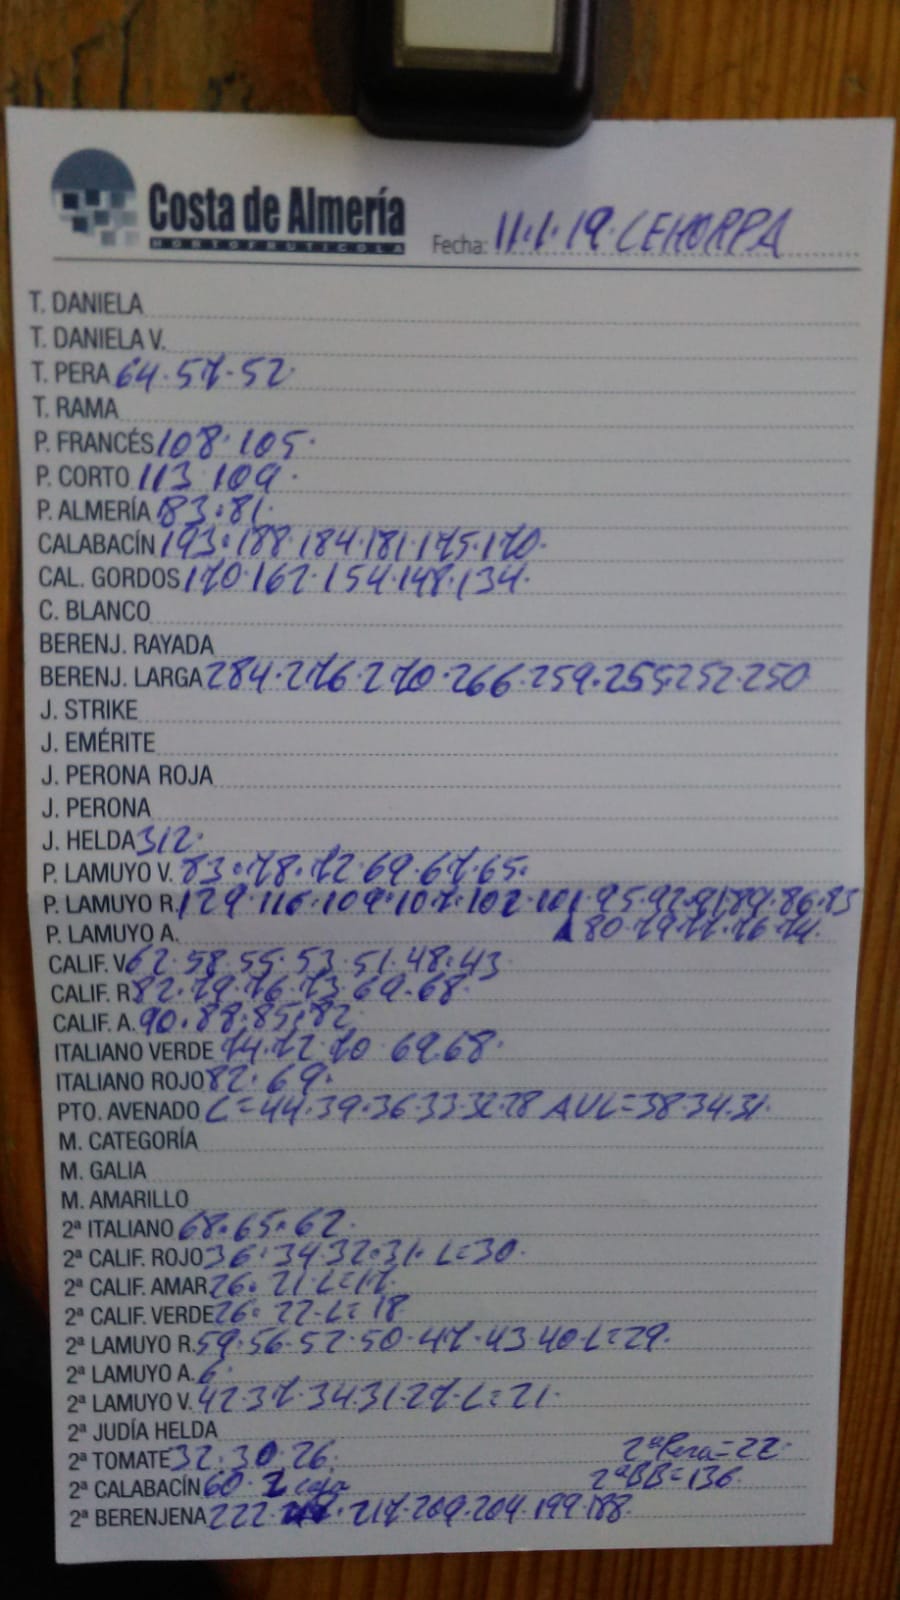 Costa de Almería
HORTOFRUTICOLA
Fecha: 11.1.19. CEHORPA
T. DANIELA
T. DANIELA V.
T. PERA 64.57.52.
T. RAMA
P. FRANCÉS 108.105.
P. CORTO 113 109.
P. ALMERÍA 83.81.
CALABACÍN 193.188.184.181.175.170.
CAL. GORDOS 170.162.154.148.134.
C. BLANCO
BERENJ. RAYADA
BERENJ. LARGA 284.276.270.266.259.255.252.250
J. STRIKE
J. EMÉRITE
J. PERONA ROJA
J. PERONA
J. HELDA 312.
P. LAMUYO V. 83.78.72.69.67.65.
P. LAMUYO R. 129.116.109.107.102.101.95.92.91.89.86.83
P. LAMUYO A. 80.79.77.76.74.
CALIF. V 62.58.55.53.51.48.43
CALIF. R 82.79.76.73.69.68.
CALIF. A. 90.88.85.82
ITALIANO VERDE 74.72.70 69.68.
ITALIANO ROJO 82.69.
PTO. AVENADO L=44.39.36.33.32.28 AUL=38.34.31.
M. CATEGORÍA
M. GALIA
M. AMARILLO
2ª ITALIANO 68.65.62.
2ª CALIF. ROJO 36.34.32.31. L=30.
2ª CALIF. AMAR 26. 21 L=17.
2ª CALIF. VERDE 26. 22-L=18
2ª LAMUYO R. 59.56.52.50.47.43 40-L=29.
2ª LAMUYO A. 6.
2ª LAMUYO V. 42.37.34.31.27-L=21.
2ª JUDÍA HELDA
2ª TOMATE 32.30.26. 2ªPera=22.
2ª CALABACÍN 60. caja 2ªBB=136.
2ª BERENJENA 222. 217.209.204.199.188.